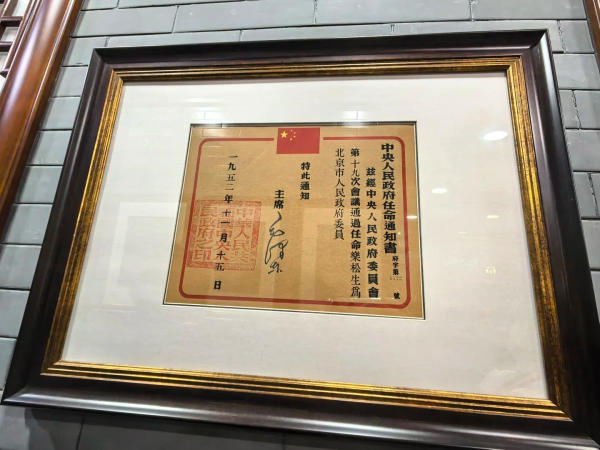 中央人民政府任命通知書
府字第
號
茲經中央人民政府委員會
第十九次會議通過任命樂松生爲
北京市人民政府委員
特此通知
主席
毛澤東
一九五二年十一月十五日
中華人民共
和國中央人
民政府之印